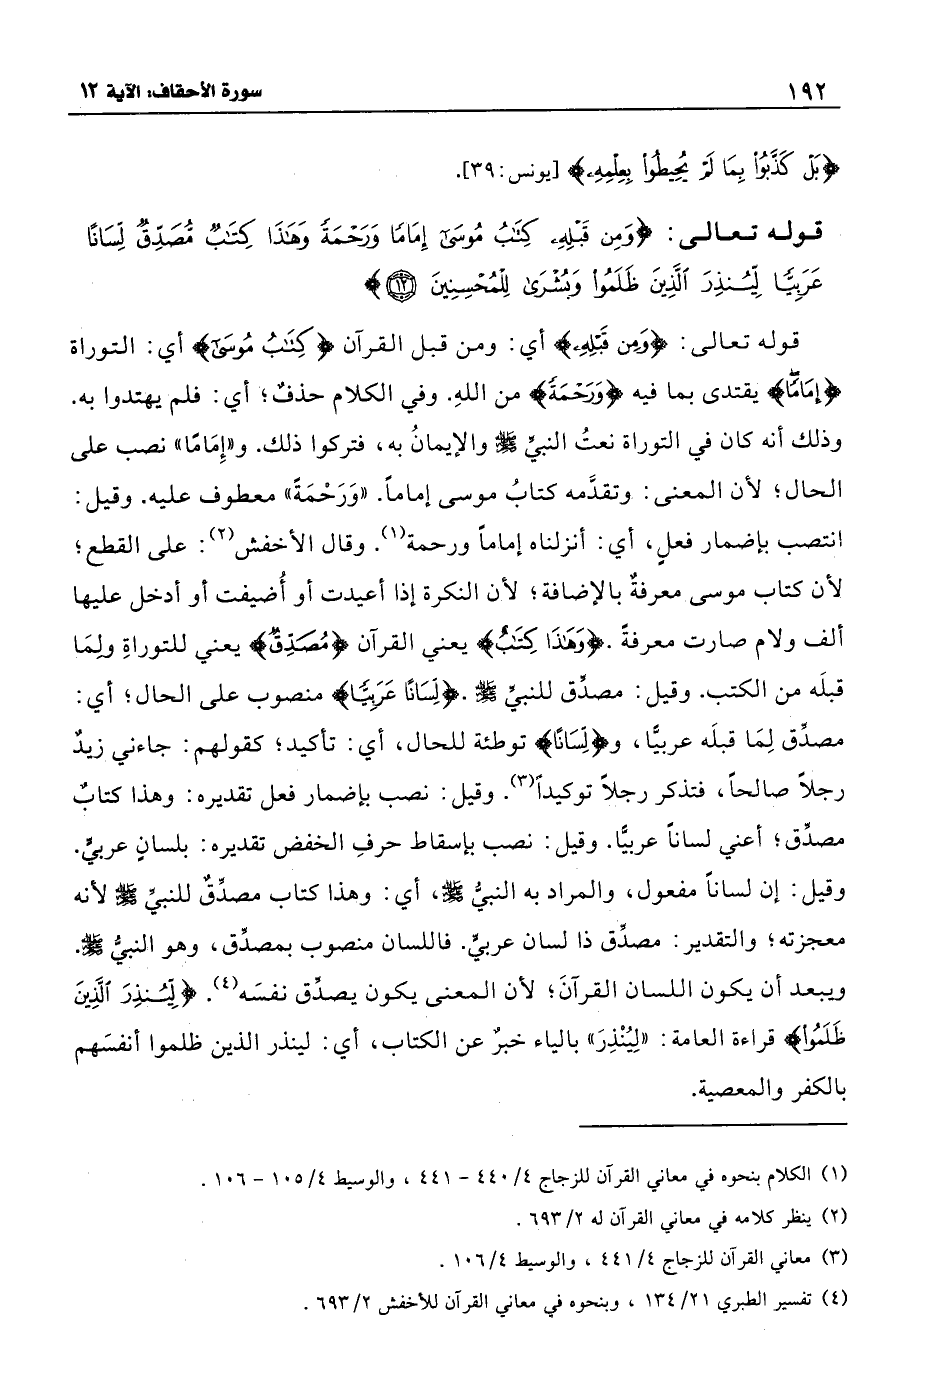 ١٩٢ سورة الأحقاف: الآية ١٢
﴿بَلْ كَذَّبُوا۟ بِمَا لَمْ يُحِيطُوا۟ بِعِلْمِهِۦ﴾ [يونس: ٣٩].
قوله تعالى: ﴿وَمِن قَبْلِهِۦ كِتَٰبُ مُوسَىٰٓ إِمَامًا وَرَحْمَةً وَهَٰذَا كِتَٰبٌ مُّصَدِّقٌ لِّسَانًا
عَرَبِيًّا لِّيُنذِرَ ٱلَّذِينَ ظَلَمُوا۟ وَبُشْرَىٰ لِلْمُحْسِنِينَ ١٢﴾
قوله تعالى: ﴿وَمِن قَبْلِهِۦ﴾ أي: ومن قبل القرآن ﴿كِتَٰبُ مُوسَىٰٓ﴾ أي: التوراة
﴿إِمَامًا﴾ يقتدى بما فيه ﴿وَرَحْمَةً﴾ من اللهِ. وفي الكلام حذفٌ؛ أي: فلم يهتدوا به.
وذلك أنه كان في التوراة نعتُ النبيِّ ﷺ والإيمانُ به، فتركوا ذلك. و«إِمَامًا» نصب على
الحال؛ لأن المعنى: وتقدَّمه كتابُ موسى إماماً. «وَرَحْمَةً» معطوف عليه. وقيل:
انتصب بإضمار فعلٍ، أي: أنزلناه إماماً ورحمة(١). وقال الأخفش(٢): على القطع؛
لأن كتاب موسى معرفةٌ بالإضافة؛ لأن النكرة إذا أعيدت أو أُضيفت أو أدخل عليها
ألف ولام صارت معرفةً. ﴿وَهَٰذَا كِتَٰبٌ﴾ يعني القرآن ﴿مُّصَدِّقٌ﴾ يعني للتوراةِ ولِمَا
قبلَه من الكتب. وقيل: مصدِّق للنبيِّ ﷺ. ﴿لِّسَانًا عَرَبِيًّا﴾ منصوب على الحال؛ أي:
مصدِّق لِمَا قبلَه عربيًّا، و﴿لِّسَانًا﴾ توطئة للحال، أي: تأكيد؛ كقولهم: جاءني زيدٌ
رجلاً صالحاً، فتذكر رجلاً توكيداً(٣). وقيل: نصب بإضمار فعل تقديره: وهذا كتابٌ
مصدِّق؛ أعني لساناً عربيًّا. وقيل: نصب بإسقاط حرفِ الخفض تقديره: بلسانٍ عربيٍّ.
وقيل: إن لساناً مفعول، والمراد به النبيُّ ﷺ، أي: وهذا كتاب مصدِّقٌ للنبيِّ ﷺ لأنه
معجزته؛ والتقدير: مصدِّق ذا لسان عربيٍّ. فاللسان منصوب بمصدِّق، وهو النبيُّ ﷺ.
ويبعد أن يكون اللسان القرآنَ؛ لأن المعنى يكون يصدِّق نفسَه(٤). ﴿لِّيُنذِرَ ٱلَّذِينَ
ظَلَمُوا۟﴾ قراءة العامة: «لِيُنْذِرَ» بالياء خبرٌ عن الكتاب، أي: لينذر الذين ظلموا أنفسَهم
بالكفر والمعصية.
(١) الكلام بنحوه في معاني القرآن للزجاج ٤/ ٤٤٠ - ٤٤١ ، والوسيط ٤/ ١٠٥ - ١٠٦ .
(٢) ينظر كلامه في معاني القرآن له ٢/ ٦٩٣ .
(٣) معاني القرآن للزجاج ٤/ ٤٤١ ، والوسيط ٤/ ١٠٦ .
(٤) تفسير الطبري ٢١/ ١٣٤ ، وبنحوه في معاني القرآن للأخفش ٢/ ٦٩٣ .